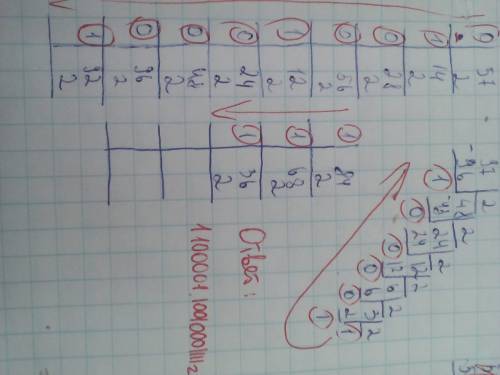 0, 57
2
1 14
2
0 28
2
0 56
2
1 12
2
0 24
2
0 48
2
0 96
2
1 92
2
1 84
2
1 68
2
1 36
2
97 2
-96 48 2
1 48 24 2
0 24 12 2
0 12 6 2
0 6 3 2
0 2 1
1
Ответ: